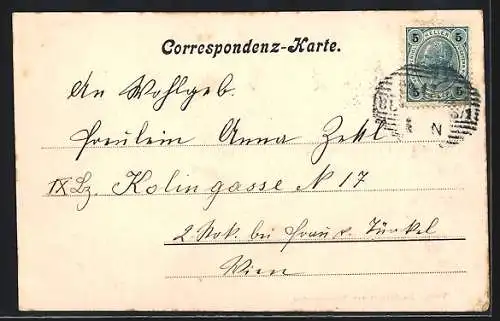 Correspondenz-Karte.
5 HELLER 5
5 5
An Wohlgeb.
Fräulein Anna Zettl
IX Bz. Kolingasse N 17
2. Stok. bei Frau v. Türkel
Wien